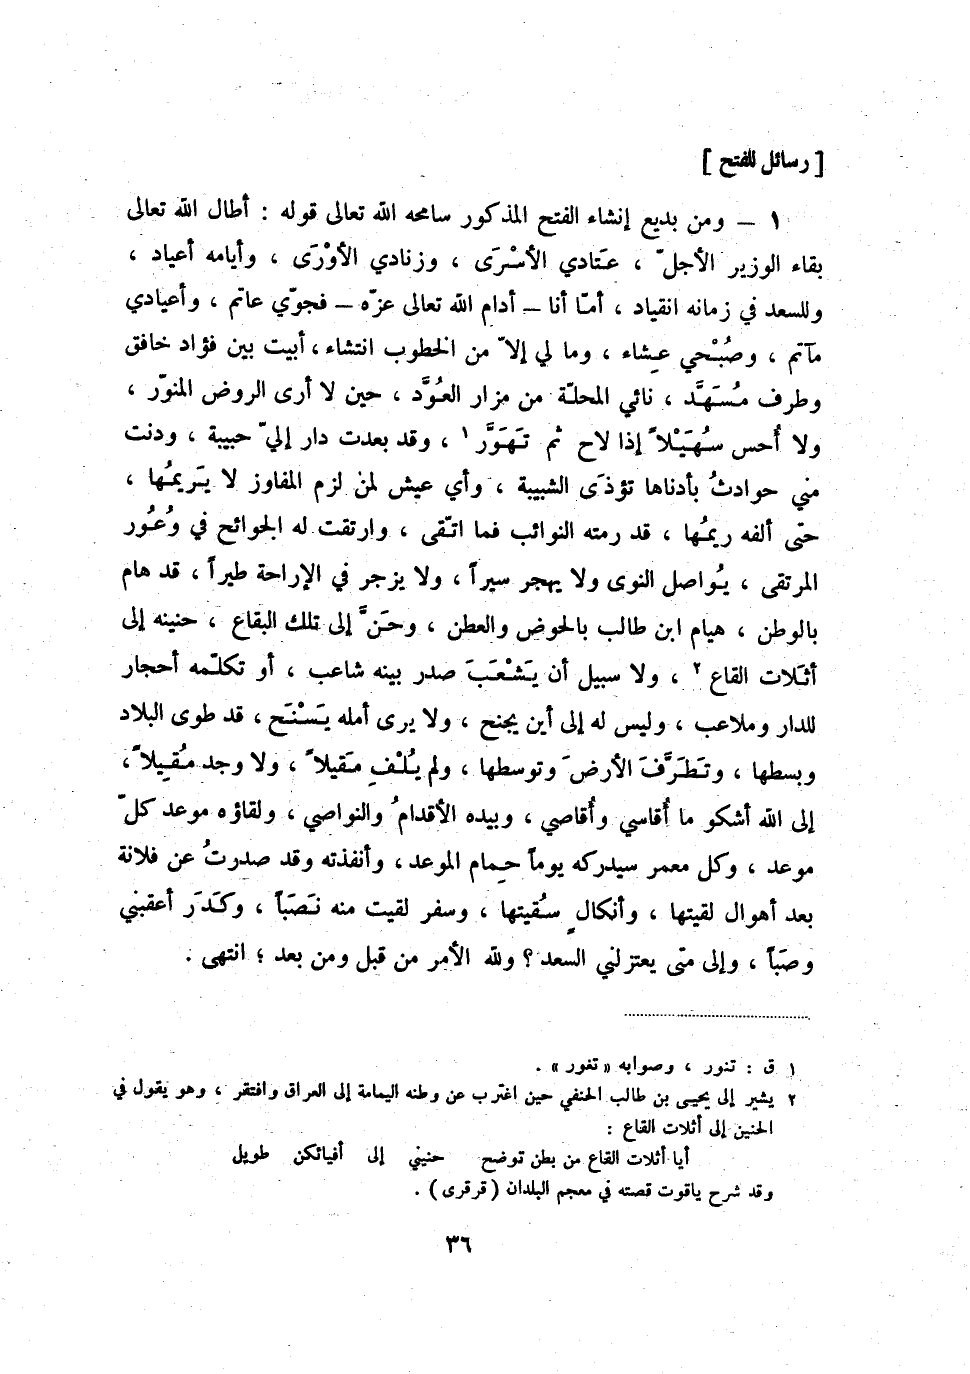 [ رسائل للفتح ]
١ – ومن بديع إنشاء الفتح المذكور سامحه الله تعالى قوله : أطال الله تعالى
بقاء الوزير الأجلّ ، عَتادي الأسْرَى ، وزنادي الأوْرَى ، وأيامه أعياد ،
وللسعد في زمانه انقياد ، أمّا أنا – أدام الله تعالى عزّه – فجوّي عاتم ، وأعيادي
مآتم ، وصُبْحي عِشاء ، وما لي إلاّ من الخطوب انتشاء ، أبيت بين فؤاد خافق
وطرف مُسَهَّد ، نائي المحلّة من مزار العُوَّد ، حين لا أرى الروض المنوّر ،
ولا أُحس سُهَيْلاً إذا لاح ثم تهَوَّر ١ ، وقد بعدت دار إليّ حبيبة ، ودنت
مني حوادثُ بأدناها تؤذَى الشبيبة ، وأي عيش لمن لزم المفاوز لا يَريمُها ،
حتّى ألفه ريمُها ، قد رمته النوائب فما اتّقى ، وارتقت له الجوائح في وُعُور
المرتقى ، يُواصل النوى ولا يهجر سيراً ، ولا يزجر في الإراحة طيراً ، قد هام
بالوطن ، هيام ابن طالب بالحوض والعطن ، وحَنَّ إلى تلك البقاع ، حنينه إلى
أثَلات القاع ٢ ، ولا سبيل أن يَشْعَبَ صدر بينه شاعب ، أو تكلّمه أحجار
للدار وملاعب ، وليس له إلى أين يجنح ، ولا يرى أمله يَسْنَح ، قد طوى البلاد
وبسطها ، وتَطَرَّفَ الأرضَ وتوسطها ، ولم يُلْفِ مَقيلاً ، ولا وجد مُقِيلاً ،
إلى الله أشكو ما أُقاسي وأُقاصي ، وبيده الأقدامُ والنواصي ، ولقاؤه موعد كلّ
موعد ، وكل معمر سيدركه يوماً حِمام الموعد ، وأنفذته وقد صدرتُ عن فلانة
بعد أهوال لقيتها ، وأنكالٍ سُقيتها ، وسفر لقيت منه نَصَباً ، وكَدَر أعقبني
وصَباً ، وإلى متى يعتزلني السعد ؟ ولله الأمر من قبل ومن بعد ؛ انتهى .
١ ق : تنور ، وصوابه « تغور » .
٢ يشير إلى يحيى بن طالب الحنفي حين اغترب عن وطنه اليمامة إلى العراق وافتقر ، وهو يقول في
الحنين إلى أثلات القاع :
أيا أثلات القاع من بطن توضح حنيني إلى أفيائكن طويل
وقد شرح ياقوت قصته في معجم البلدان ( قرقرى ) .
٣٦